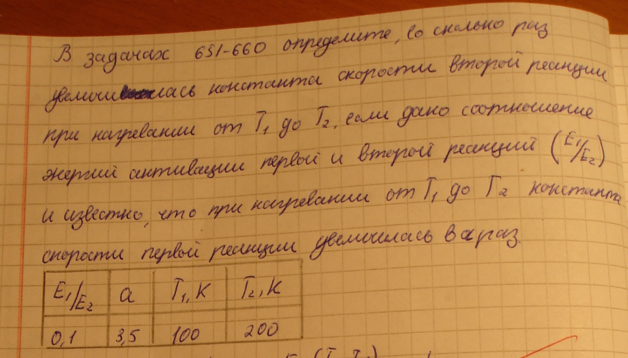 В задачах 651-660 определите, во сколько раз
увеличилась константа скорости второй реакции
при нагревании от T₁ до T₂, если дано соотношение
энергий активации первой и второй реакций (E₁/E₂)
и известно, что при нагревании от T₁ до T₂ константа
скорости первой реакции увеличилась в a раз.
E₁/E₂ a T₁, К T₂, К
0,1 3,5 100 200